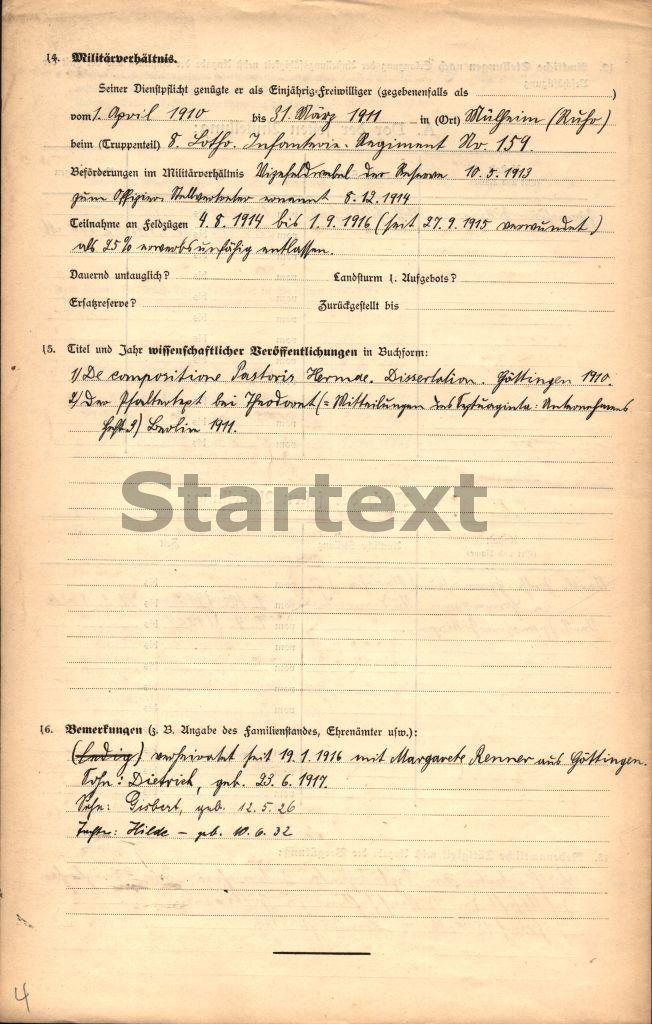 14. Militärverhältnis.
Seiner Dienstpflicht genügte er als Einjährig-Freiwilliger (gegebenenfalls als )
vom 1. April 1910 bis 31. März 1911 in (Ort) Mülheim (Ruhr)
beim (Truppenteil) 8. Lothr. Infanterie-Regiment No. 159.
Beförderungen im Militärverhältnis Vizefeldwebel der Reserve 10.5.1913
zum Offizier-Stellvertreter ernannt 8.12.1914
Teilnahme an Feldzügen 4.8.1914 bis 1.9.1916 (seit 27.9.1915 verwundet)
als 25% erwerbsunfähig entlassen.
Dauernd untauglich? Landsturm 1. Aufgebots?
Ersatzreserve? Zurückgestellt bis
15. Titel und Jahr wissenschaftlicher Veröffentlichungen in Buchform:
1) De compositione Pastoris Hermae. Dissertation. Göttingen 1910.
2) Der Psaltertext bei Theodoret (= Mitteilungen des Septuaginta-Unternehmens
Heft 3) Berlin 1911.
Startext
16. Bemerkungen (z. B. Angabe des Familienstandes, Ehrenämter usw.):
(ledig) verheiratet seit 19.1.1916 mit Margarete Renner aus Göttingen.
Sohn: Dietrich, geb. 23.6.1917.
Sohn: Gisbert, geb. 12.5.26
Tochter: Hilde – geb. 10.6.32
4